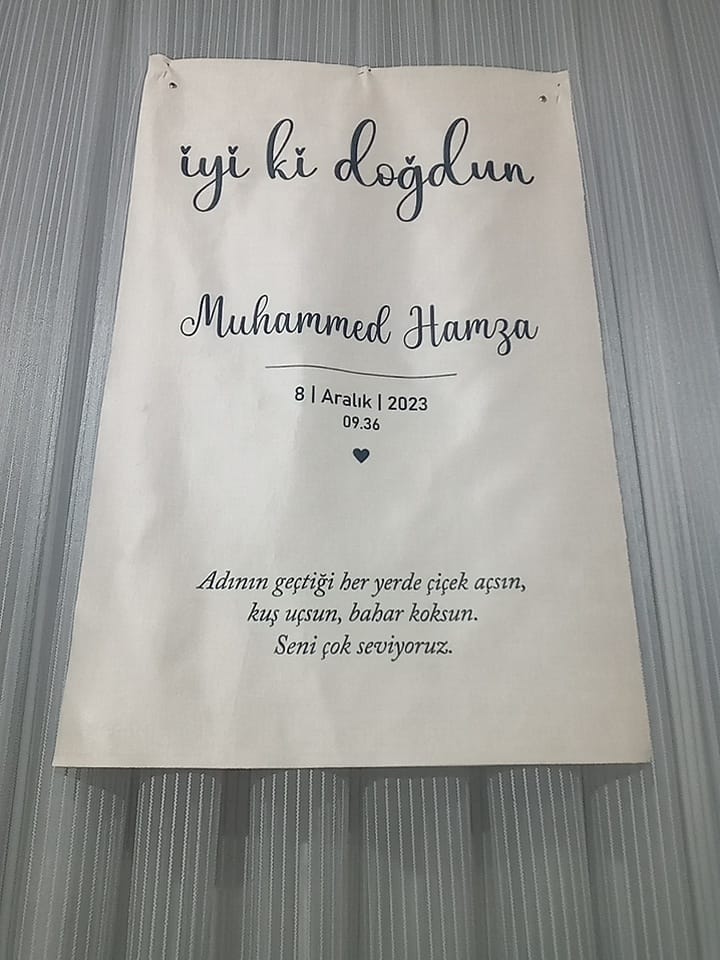 iyi ki doğdun
Muhammed Hamza
8 | Aralık | 2023
09.36
Adının geçtiği her yerde çiçek açsın,
kuş uçsun, bahar koksun.
Seni çok seviyoruz.